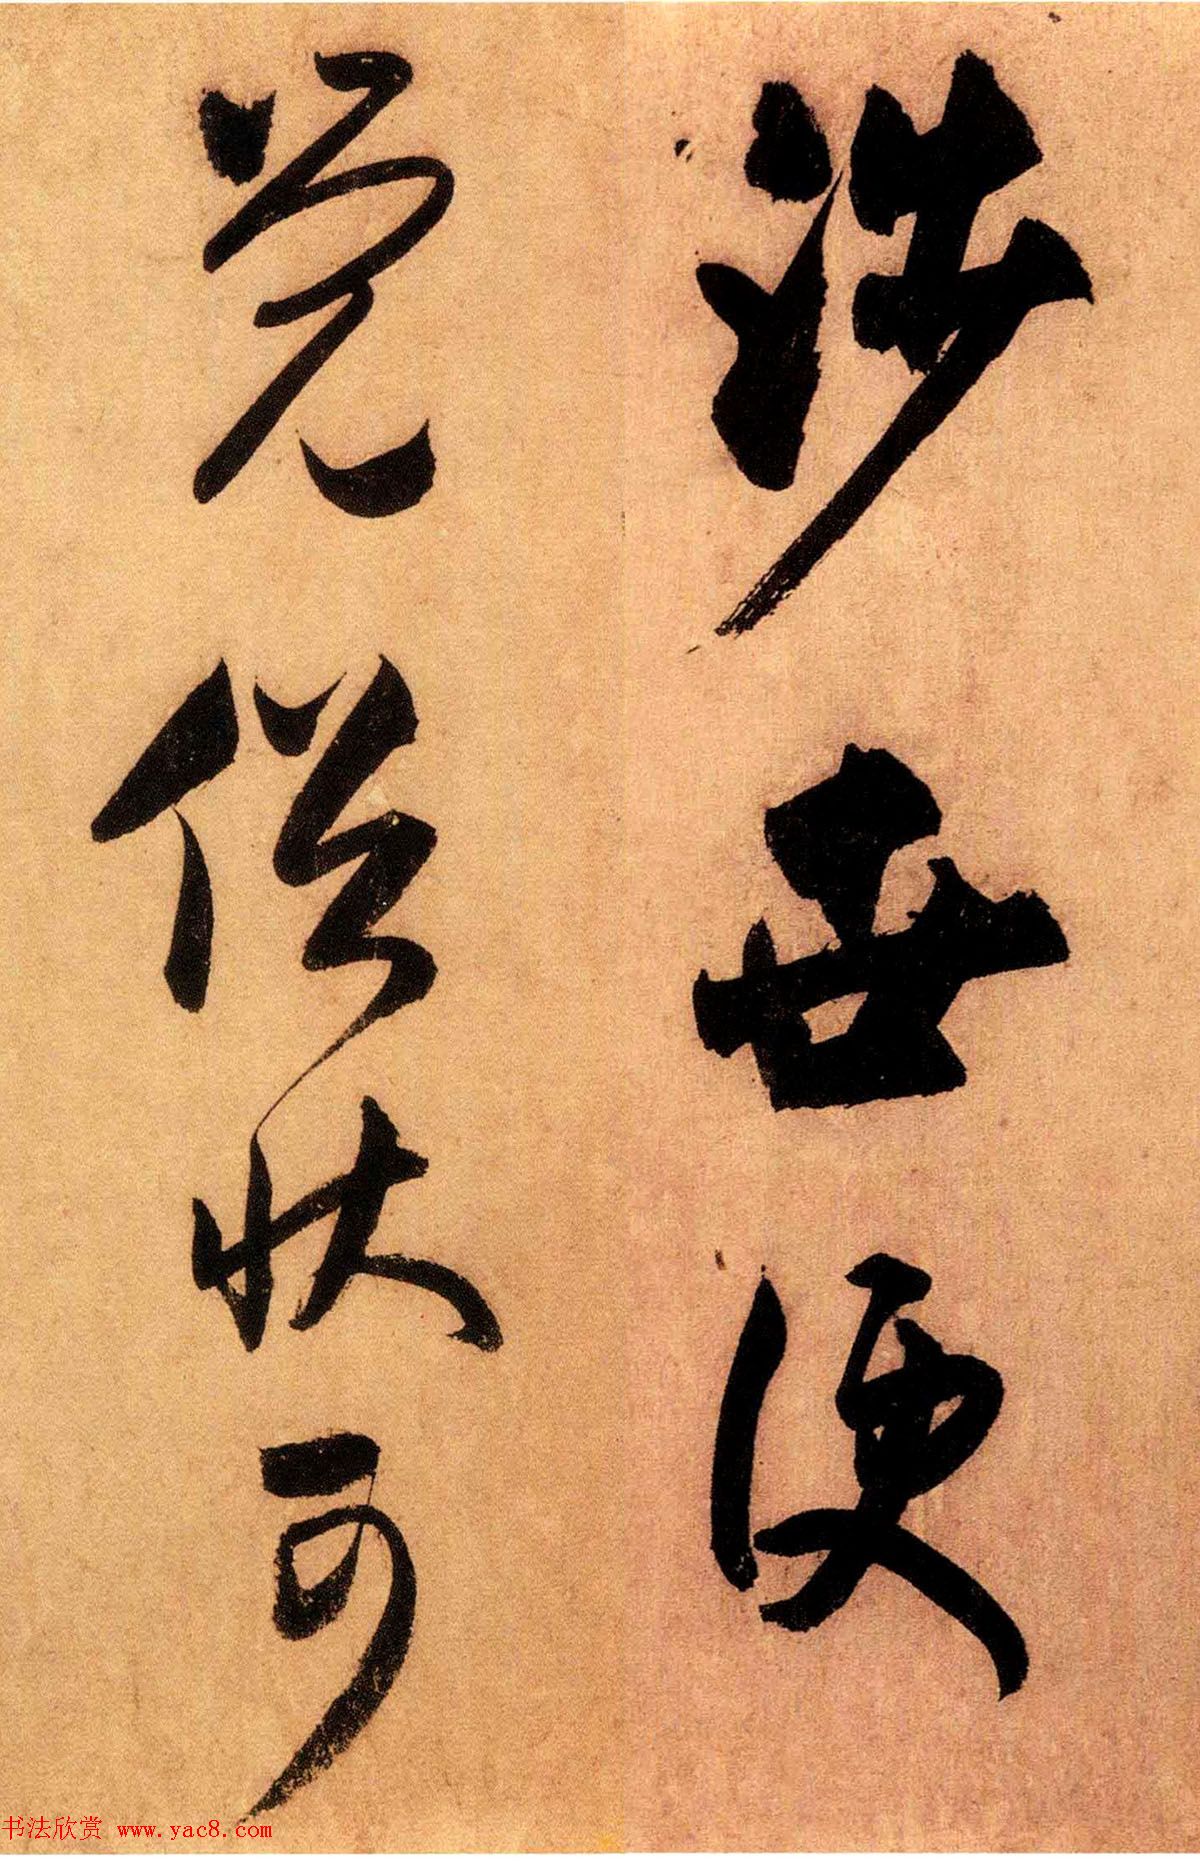 涉世便
觉俗状可
书法欣赏 www.yac8.com